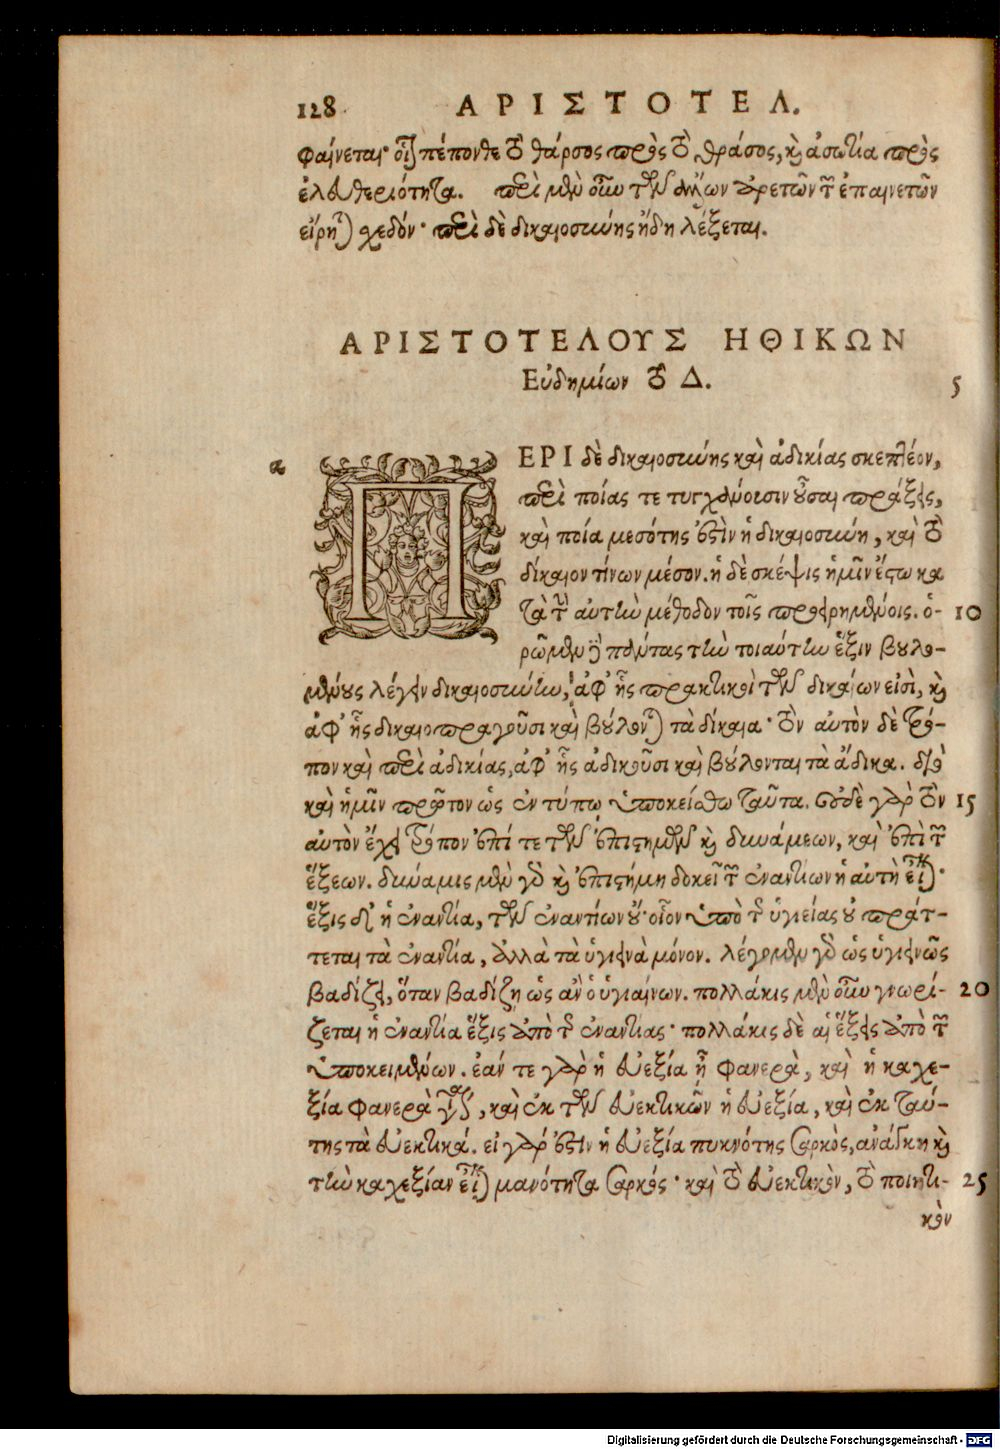 128 ΑΡΙΣΤΟΤΕΛ.
φαίνεται· οἷον πέπονθε τὸ θάρσος πρὸς τὸ θράσος, καὶ ἀσωτία πρὸς
ἐλευθεριότητα. περὶ μὲν οὖν τῶν ἄλλων ἀρετῶν τῶν ἐπαινετῶν
εἴρηται σχεδόν· περὶ δὲ δικαιοσύνης ἤδη λέξεται.
ΑΡΙΣΤΟΤΕΛΟΥΣ ΗΘΙΚΩΝ
Εὐδημίων τὸ Δ. 5
α ΠΕΡΙ δὲ δικαιοσύνης καὶ ἀδικίας σκεπτέον,
περὶ ποίας τε τυγχάνουσιν οὖσαι πράξεις,
καὶ ποία μεσότης ἐστὶν ἡ δικαιοσύνη, καὶ τὸ
δίκαιον τίνων μέσον. ἡ δὲ σκέψις ἡμῖν ἔστω κα
τὰ τὴν αὐτὴν μέθοδον τοῖς προειρημένοις. ὁ- 10
ρῶμεν δὴ πάντας τὴν τοιαύτην ἕξιν βουλο-
μένους λέγειν δικαιοσύνην, ἀφ' ἧς πρακτικοὶ τῶν δικαίων εἰσὶ, καὶ
ἀφ' ἧς δικαιοπραγοῦσι καὶ βούλονται τὰ δίκαια· τὸν αὐτὸν δὲ τρό-
πον καὶ περὶ ἀδικίας, ἀφ' ἧς ἀδικοῦσι καὶ βούλονται τὰ ἄδικα. διὸ
καὶ ἡμῖν πρῶτον ὡς ἐν τύπῳ ὑποκείσθω ταῦτα. οὐδὲ γὰρ τὸν 15
αὐτὸν ἔχει τρόπον ἐπί τε τῶν ἐπιστημῶν καὶ δυνάμεων, καὶ ἐπὶ τῶν
ἕξεων. δύναμις μὲν γὰρ καὶ ἐπιστήμη δοκεῖ τῶν ἐναντίων ἡ αὐτὴ εἶναι·
ἕξις δ' ἡ ἐναντία, τῶν ἐναντίων οὔ· οἷον ὑπὸ τῆς ὑγιείας οὐ πράτ-
τεται τὰ ἐναντία, ἀλλὰ τὰ ὑγιεινὰ μόνον. λέγομεν γὰρ ὡς ὑγιεινῶς
βαδίζει, ὅταν βαδίζῃ ὡς ἂν ὁ ὑγιαίνων. πολλάκις μὲν οὖν γνωρί- 20
ζεται ἡ ἐναντία ἕξις ἀπὸ τῆς ἐναντίας· πολλάκις δὲ αἱ ἕξεις ἀπὸ τῶν
ὑποκειμένων. ἐάν τε γὰρ ἡ εὐεξία ᾖ φανερὰ, καὶ ἡ καχε-
ξία φανερὰ γίνεται, καὶ ἐκ τῶν εὐεκτικῶν ἡ εὐεξία, καὶ ἐκ ταύ-
της τὰ εὐεκτικά. εἰ γάρ ἐστιν ἡ εὐεξία πυκνότης σαρκὸς, ἀνάγκη καὶ
τὴν καχεξίαν εἶναι μανότητα σαρκός· καὶ τὸ εὐεκτικὸν, τὸ ποιητι- 25
κὸν
Digitalisierung gefördert durch die Deutsche Forschungsgemeinschaft - DFG